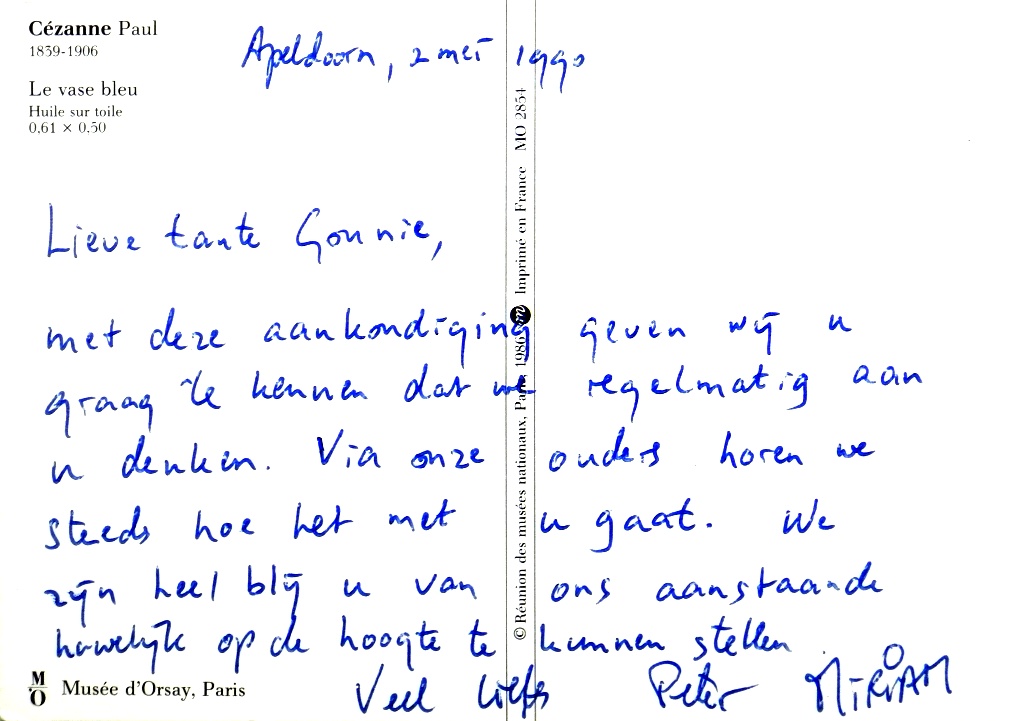 Cézanne Paul
1839-1906
Le vase bleu
Huile sur toile
0,61 × 0,50
Apeldoorn, 2 mei 1990
Lieve tante Gonnie,
met deze aankondiging geven wij u
graag te kennen dat we regelmatig aan
u denken. Via onze ouders horen we
steeds hoe het met u gaat. We
zijn heel blij u van ons aanstaande
huwelijk op de hoogte te kunnen stellen.
Veel liefs Peter MiRiAM
M
O
Musée d'Orsay, Paris
© Réunion des musées nationaux, Paris 1986 Imprimé en France MO 2854